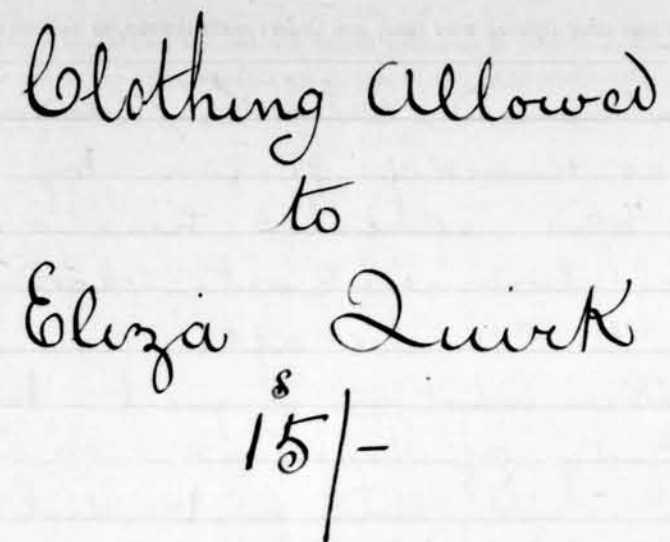 Clothing Allowed
to
Eliza Quirk
s
15/-